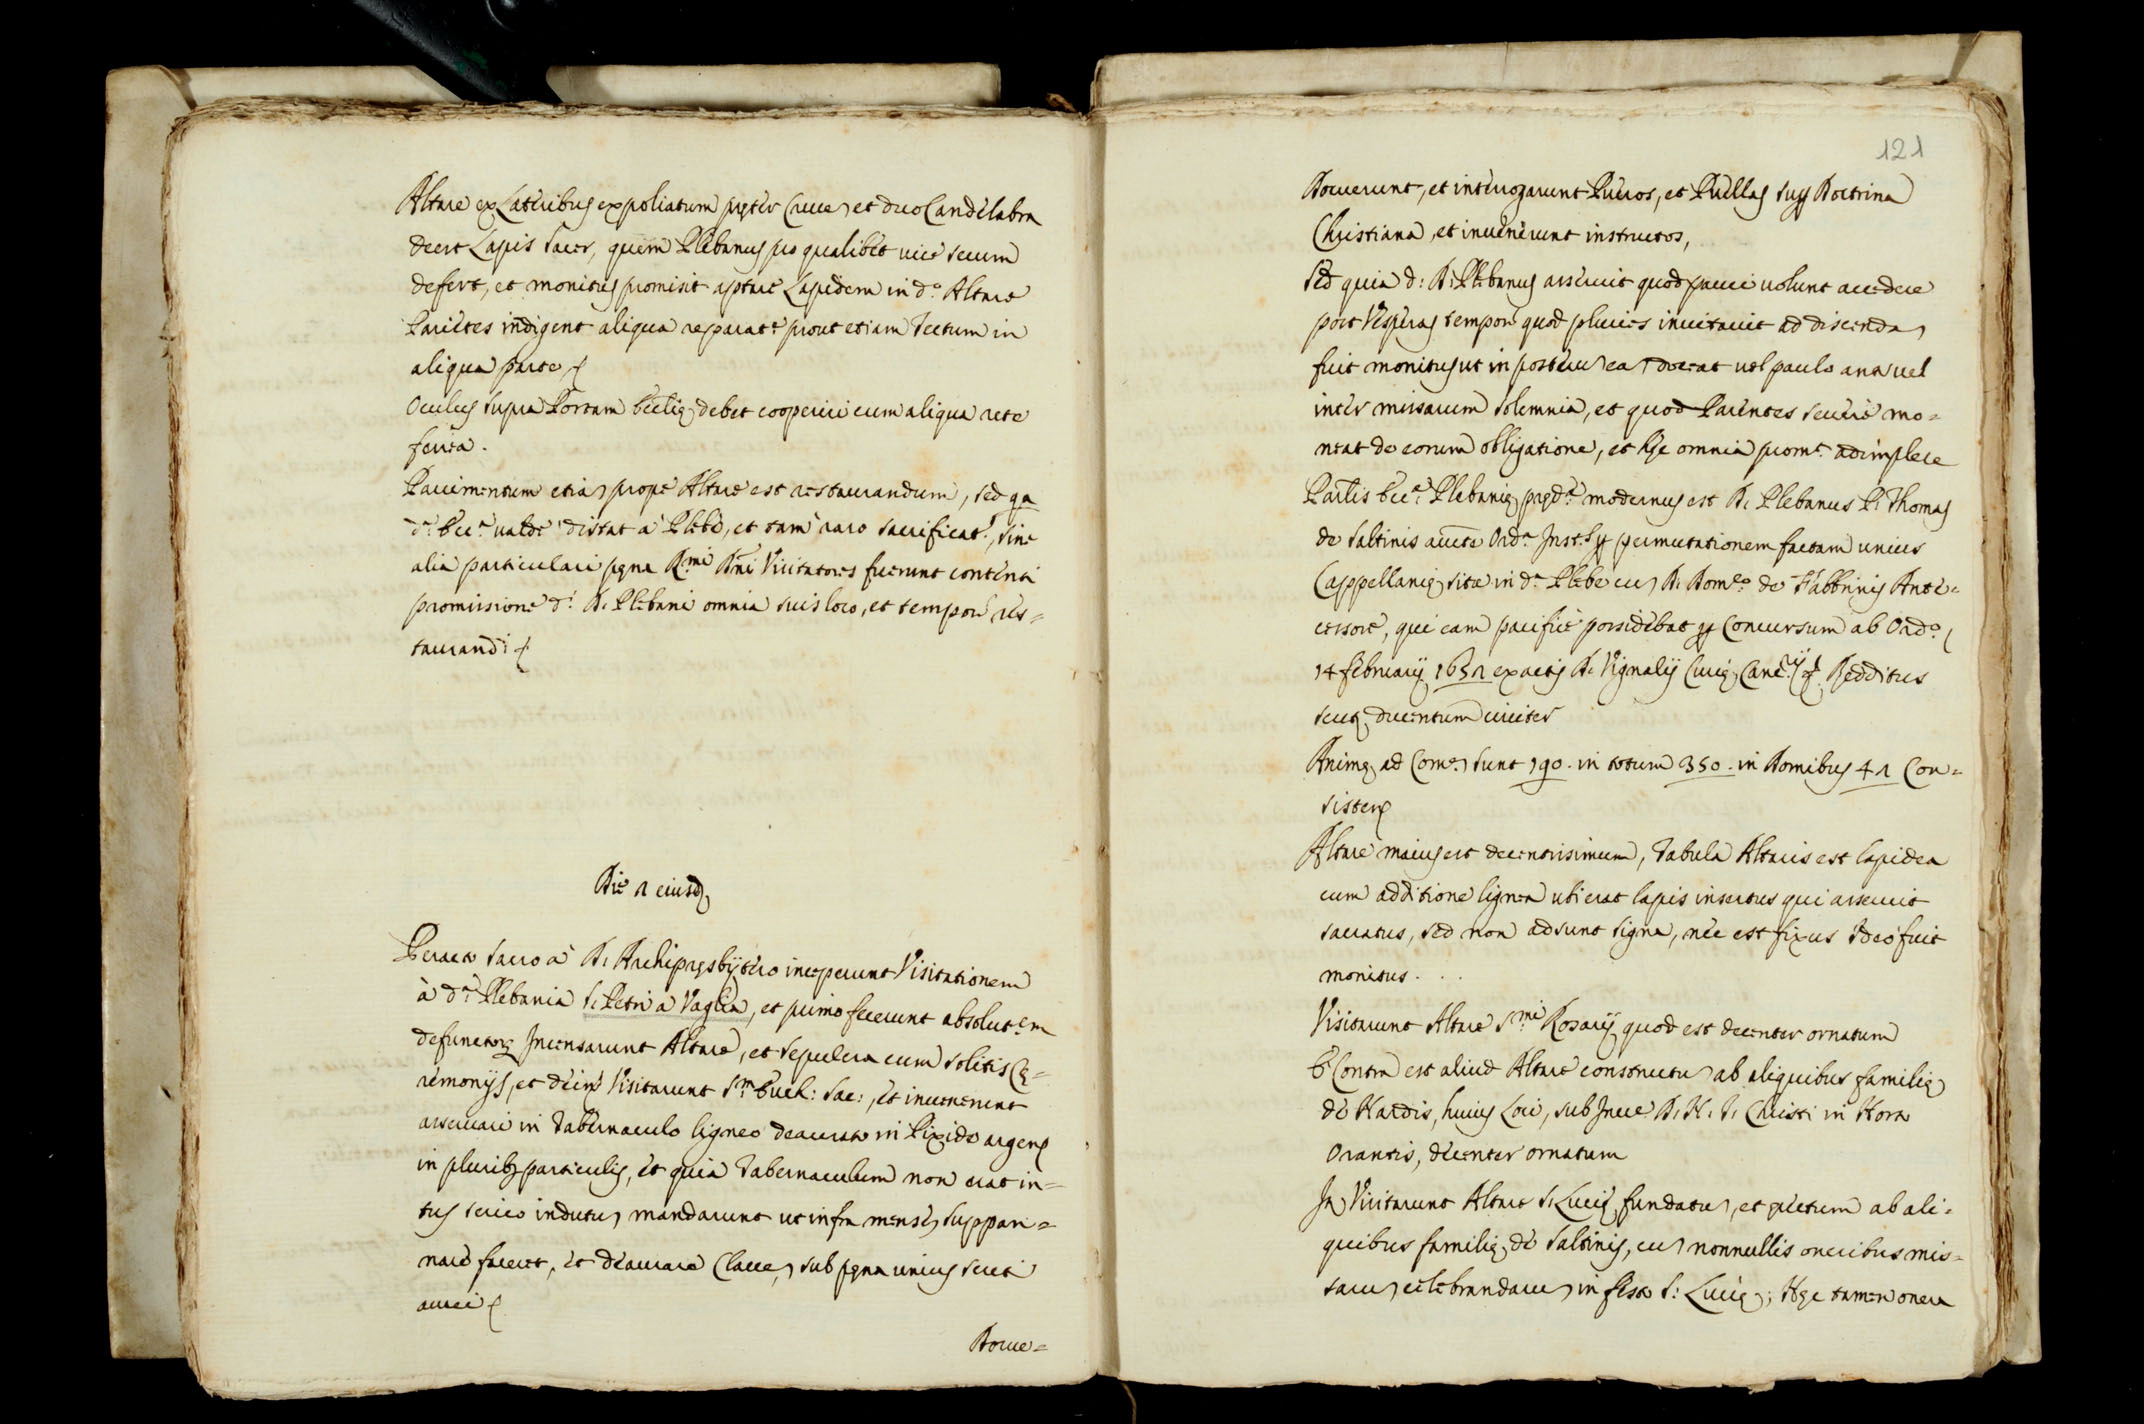 Altare ex Lateribus expoliatum pręter Cruce, et duo Candelabra
deest Lapis Sacer, quem Plebanus pro qualibet vice secum
defert, et monitus promisit aptare Lapidem in d.º Altare
Parietes indigent aliqua reparat.e prout etiam Tectum in
aliqua parte
Oculus supra Portam Ecclię debet cooperiri cum aliqua rete
ferrea.
Pavimentum etia, prope Altare est restaurandum, sed qa
d.a Ecc.a valde distat à Plebe, et tam raro sacrificat.r, sine
alia particulari pęna R.mi D.ni Visitatores fuerunt contenti
promissione d.i D. Plebani omnia suis loco, et tempore res=
taurandi
Die 2 eiusdę
Peracto sacro à D. Archipręsbÿtero inceperunt Visitationem
à d.a Plebania S. Petri a Vaglia, et primo fecerunt absolut.em
defunctorꝝ Incensarunt Altare, et sepulcra cum solitis Cę=
remonijs, et deinde Visitarunt S.m Euch: Sac:, et invenerunt
asservari in Tabernaculo ligneo deaurato in Pixide argen.
in pluribꝫ particulis, et quia Tabernaculum non erat in=
tus serico indutu, mandarunt ut infra mense, suppan=
nare faceret, et deaurare Clave, sub pęna unius scuti
aurei
Docue=
121
Docuerunt, et interrogarunt Pueros, et Puellas sup Doctrina
Christiana, et invenerunt instructos,
Sed quia d: D. Plebanus asseruit quod pauci volunt accedere
post Vesperas tempore quod pluries invitavit ad discenda,
fuit monitus ut in posteru, ea, doceat vel paulo ante vel
inter missarum solemnia, et quod Parentes severe mo=
neat de eorum obligatione, et hęc omnia prom.t adimplere
Ecc.ę Plebanię pręd.ę modernus est D. Plebanus P. Thomas
de Saltinis Ord.a p permutationem factam unius
Cappellanię sitę in d.a Plebe cu, D. Dom.co de Fabbrinis Ante=
cessore, qui eam pacifice possidebat p Concursum ab Ord.º
14 februarij 1652 ex actis D. Vignalij Curię Canc.rij Redditus
scutꝝ ducentum circiter
Animę ad Com.e, sunt 190. in totum 350. in Domibus 42 Con=
sisten
Altare maius est decentissimum, Tabula Altaris est lapidea
cum additione lignea ubi erat lapis insertus qui asseruit
sacratus, sed non adsunt signa, nec est fixus Ideo fuit
monitus . . .
Visitarunt Altare S.mi Rosarij quod est decenter ornatum
E Contra est aliud Altare constructu, ab aliquibus familię,
de Nardis, huius Loci, sub Invoc. D. N. J. Christi in Horto
Orantis, decenter ornatum
It, Visitarunt Altare S. Lucię fundatu, et erectum ab ali=
quibus familię, de Saltinis, cu, nonnullis oneribus mis=
saru, celebrandaru, in festo S: Lucię; Hęc tamen onera